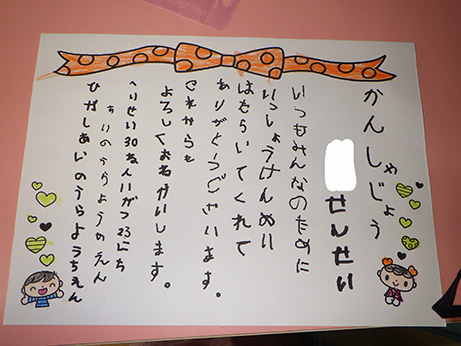 かんしゃじょう
せんせい
いつもみんなのために
いっしょうけんめい
はたらいてくれて
ありがとうございます。
これからも
よろしくおねがいします。
へいせい30ねん11がつ23にち
あいのうらようちえん
ひがしあいのうらようちえん